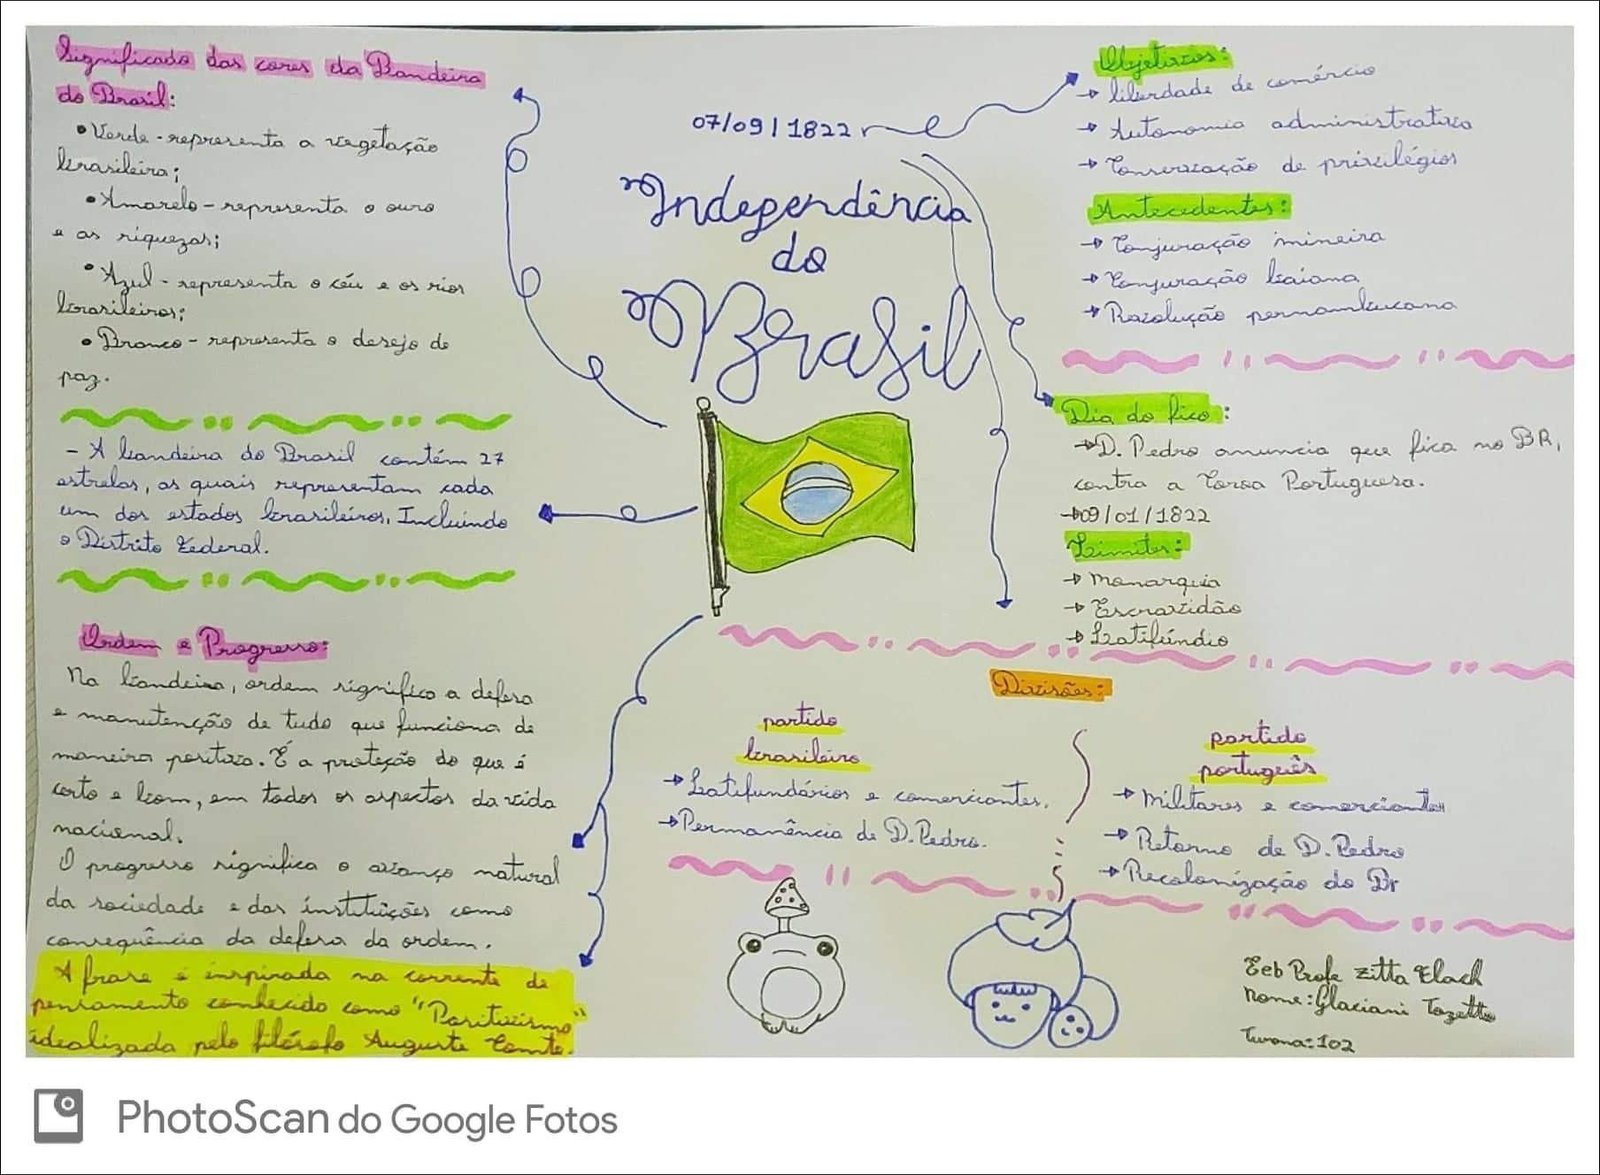 Significado das cores da Bandeira
do Brasil:
• Verde - representa a vegetação
brasileira;
• Amarelo - representa o ouro
e as riquezas;
• Azul - representa o céu e os rios
brasileiros;
• Branco - representa o desejo de
paz.
- A bandeira do Brasil contém 27
estrelas, as quais representam cada
um dos estados brasileiros. Incluindo
o Distrito Federal.
Ordem e Progresso:
Na bandeira, ordem significa a defesa
e manutenção de tudo que funciona de
maneira positiva. É a proteção do que é
certo e bom, em todos os aspectos da vida
nacional.
O progresso significa o avanço natural
da sociedade e das instituições como
consequência da defesa da ordem.
A frase é inspirada na corrente de
pensamento conhecido como "Positivismo"
idealizada pelo filósofo Auguste Comte.
07/09/1822
Independência
do
Brasil
Objetivos:
→ liberdade de comércio
→ Autonomia administrativa
→ Conservação de privilégios
Antecedentes:
→ Conjuração mineira
→ Conjuração baiana
→ Revolução pernambucana
Dia do fico:
→ D. Pedro anuncia que fica no BR,
contra a Coroa Portuguesa.
→ 09/01/1822
Limites:
→ Monarquia
→ Escravidão
→ Latifúndio
Divisões:
partido
brasileiro
→ Latifundários e comerciantes.
→ Permanência de D. Pedro.
partido
português
→ Militares e comerciantes
→ Retorno de D. Pedro
→ Recolonização do Br
Eeb Profe Zitta Flach
Nome: Glaciani Tozetto
Turma: 102
PhotoScan do Google Fotos